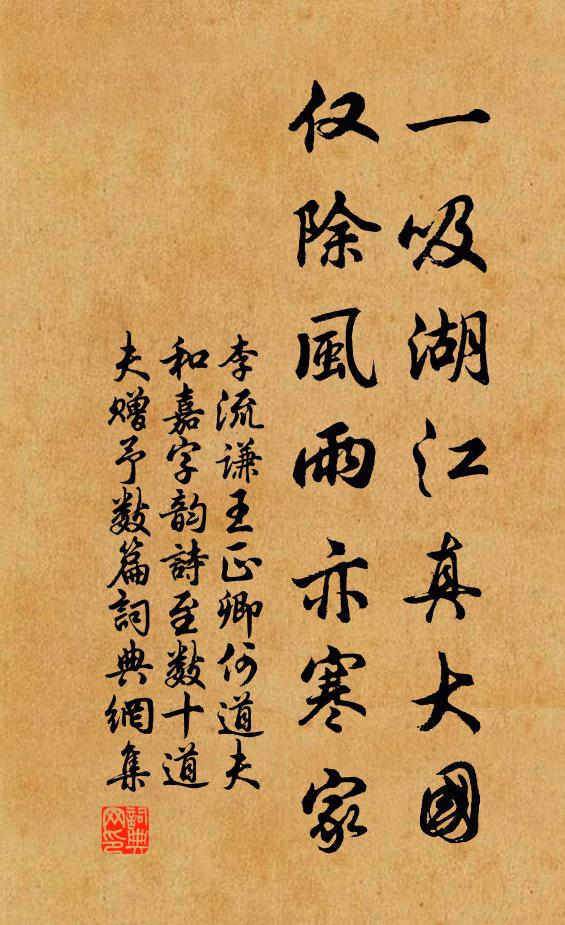 一吸湖江真大國
仅除風雨亦寒家
李流谦王正卿何道夫
和嘉字韵詩至数十道
夫赠予数篇詞典網集
詞典网印